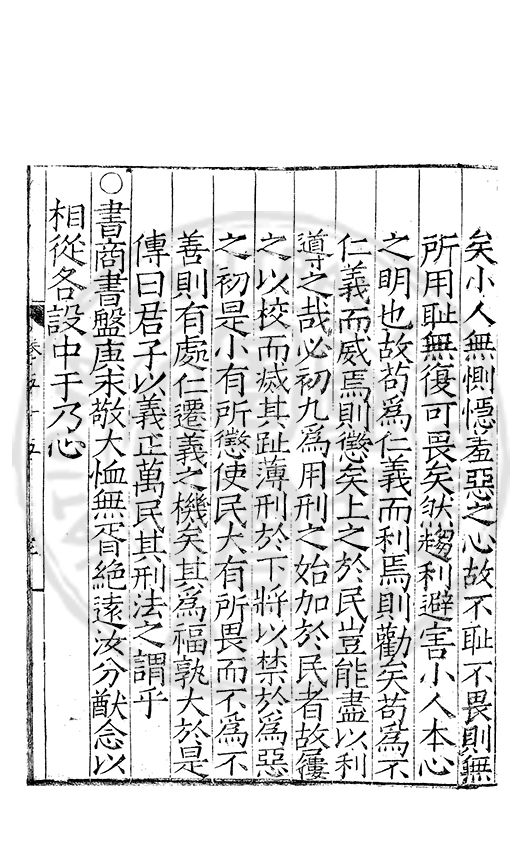 矣小人無惻隱羞惡之心故不耻不畏則無
所用耻無復可畏矣然趨利避害小人本心
之明也故苟為仁義而利焉則勸矣苟為不
仁義而威焉則懲矣上之於民豈能盡以利
導之哉必初九為用刑之始加於民者故屨
之以校而滅其趾薄刑於下將以禁於為惡
之初是小有所懲使民大有所畏而不為不
善則有處仁遷義之機矣其為福孰大於是
傳曰君子以義正萬民其刑法之謂乎
○書商書盤庚末敬大恤無胥絶遠汝分猷念以
相從各設中于乃心
卷五十五